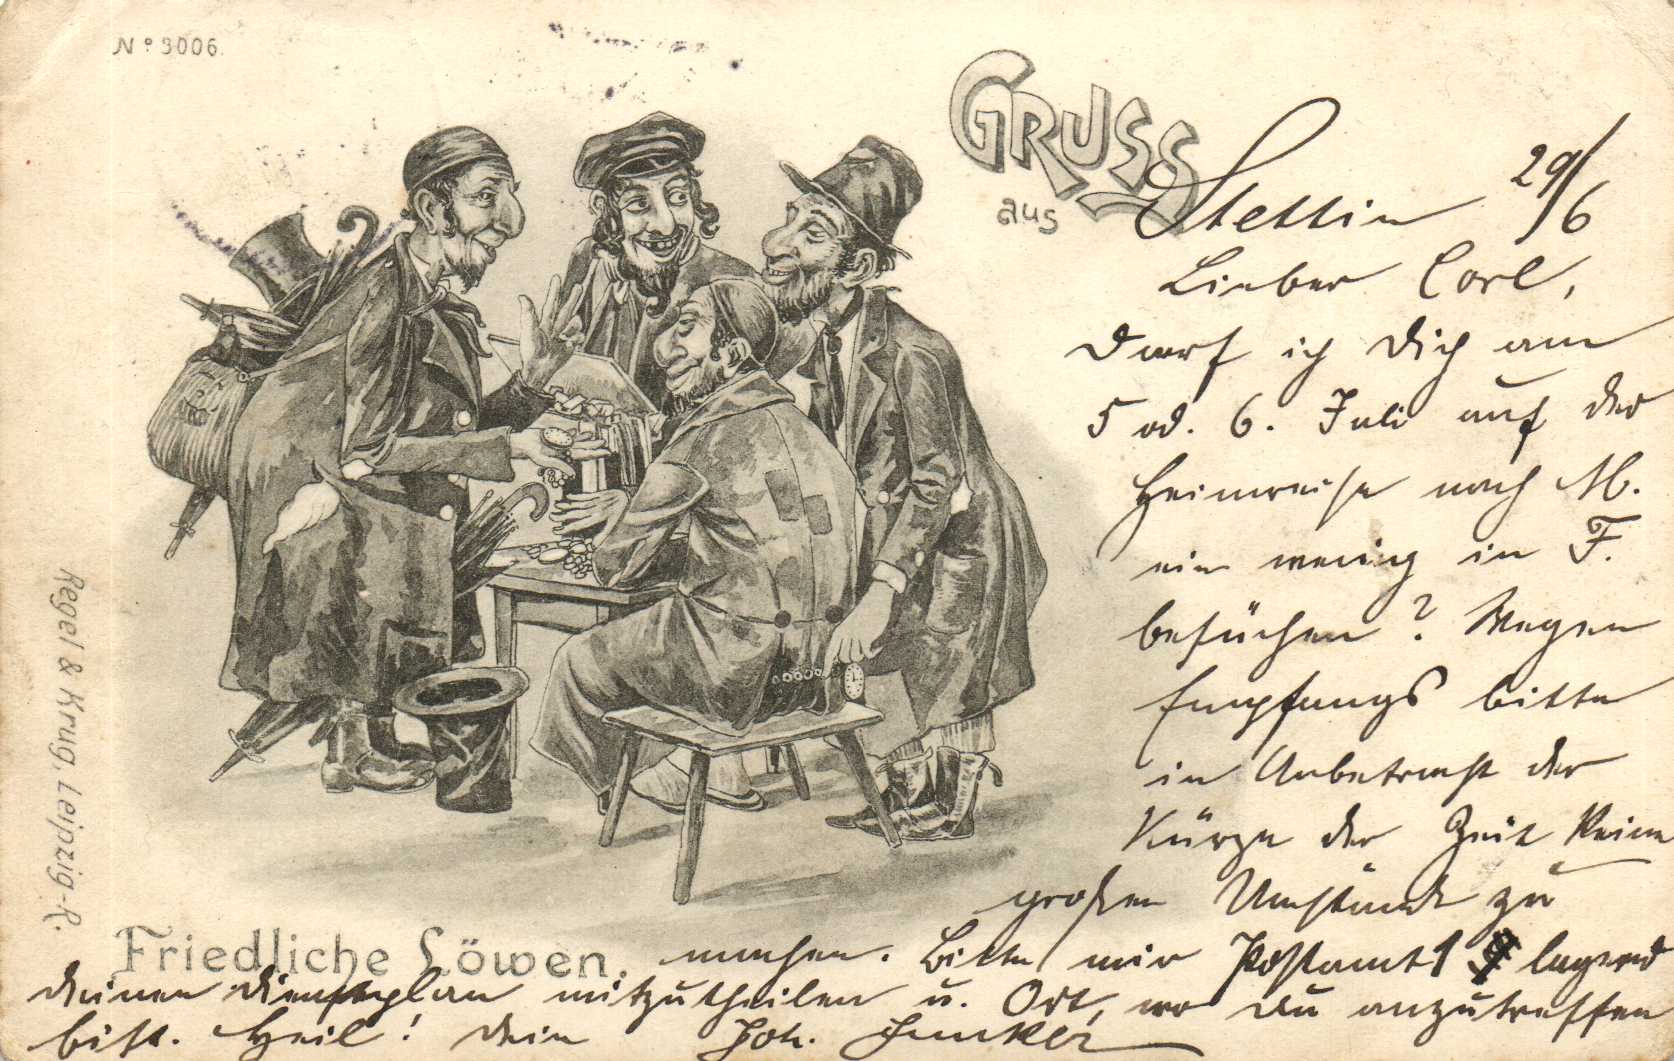 No 3006.
GRUSS
aus
Stettin 29/6
Lieber Carl,
Darf ich Dich am
5 od. 6. Juli auf der
Heimreise nach M.
ein wenig in F.
besuchen? Wegen
Empfangs bitte
in Anbetracht der
Kürze der Zeit keine
großen Umstände zu
machen. Bitte mir Postamt 1 lagernd
deinen Dienstplan mitzutheilen u. Ort, wo Du anzutreffen
bist. Heil! Dein Joh. Junker
Friedliche Löwen.
Regel & Krug, Leipzig-R.